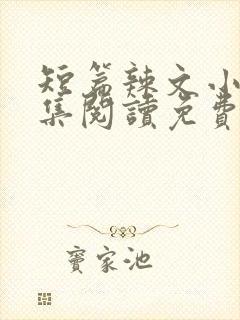 短篇辣文小
集閱讀免費
竇家池